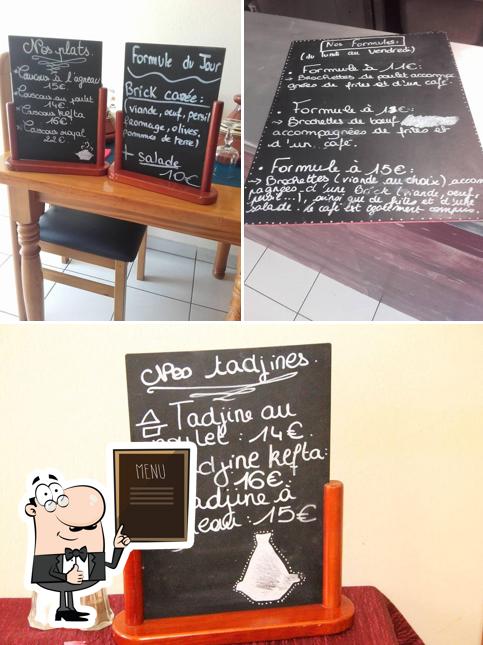 Nos plats.
• Couscous à l'agneau
15€.
• Couscous au poulet
14€.
• Couscous kefta
16€.
• Couscous royal
22€.
Formule du Jour
Brick carée:
(viande, oeuf, persil
fromage, olives,
pommes de terre)
+ salade
10€
Nos Formules:
(du lundi au vendredi)
• Formule à 11€:
→ Brochettes de poulet accompa
gnées de frites et d'un café.
Formule à 13€:
→ Brochettes de boeuf
accompagnées de frites et
d'un café.
• Formule à 15€:
→ Brochettes (viande au choix) accom
pagnées d'une Brick (viande, oeuf,
persil...), ainsi que de frites et d'une
salade. le café est également compris.
Nos tadjines.
Tadjine au
poulet: 14€.
adjine kefta:
16€.
adjine à
15€
MENU